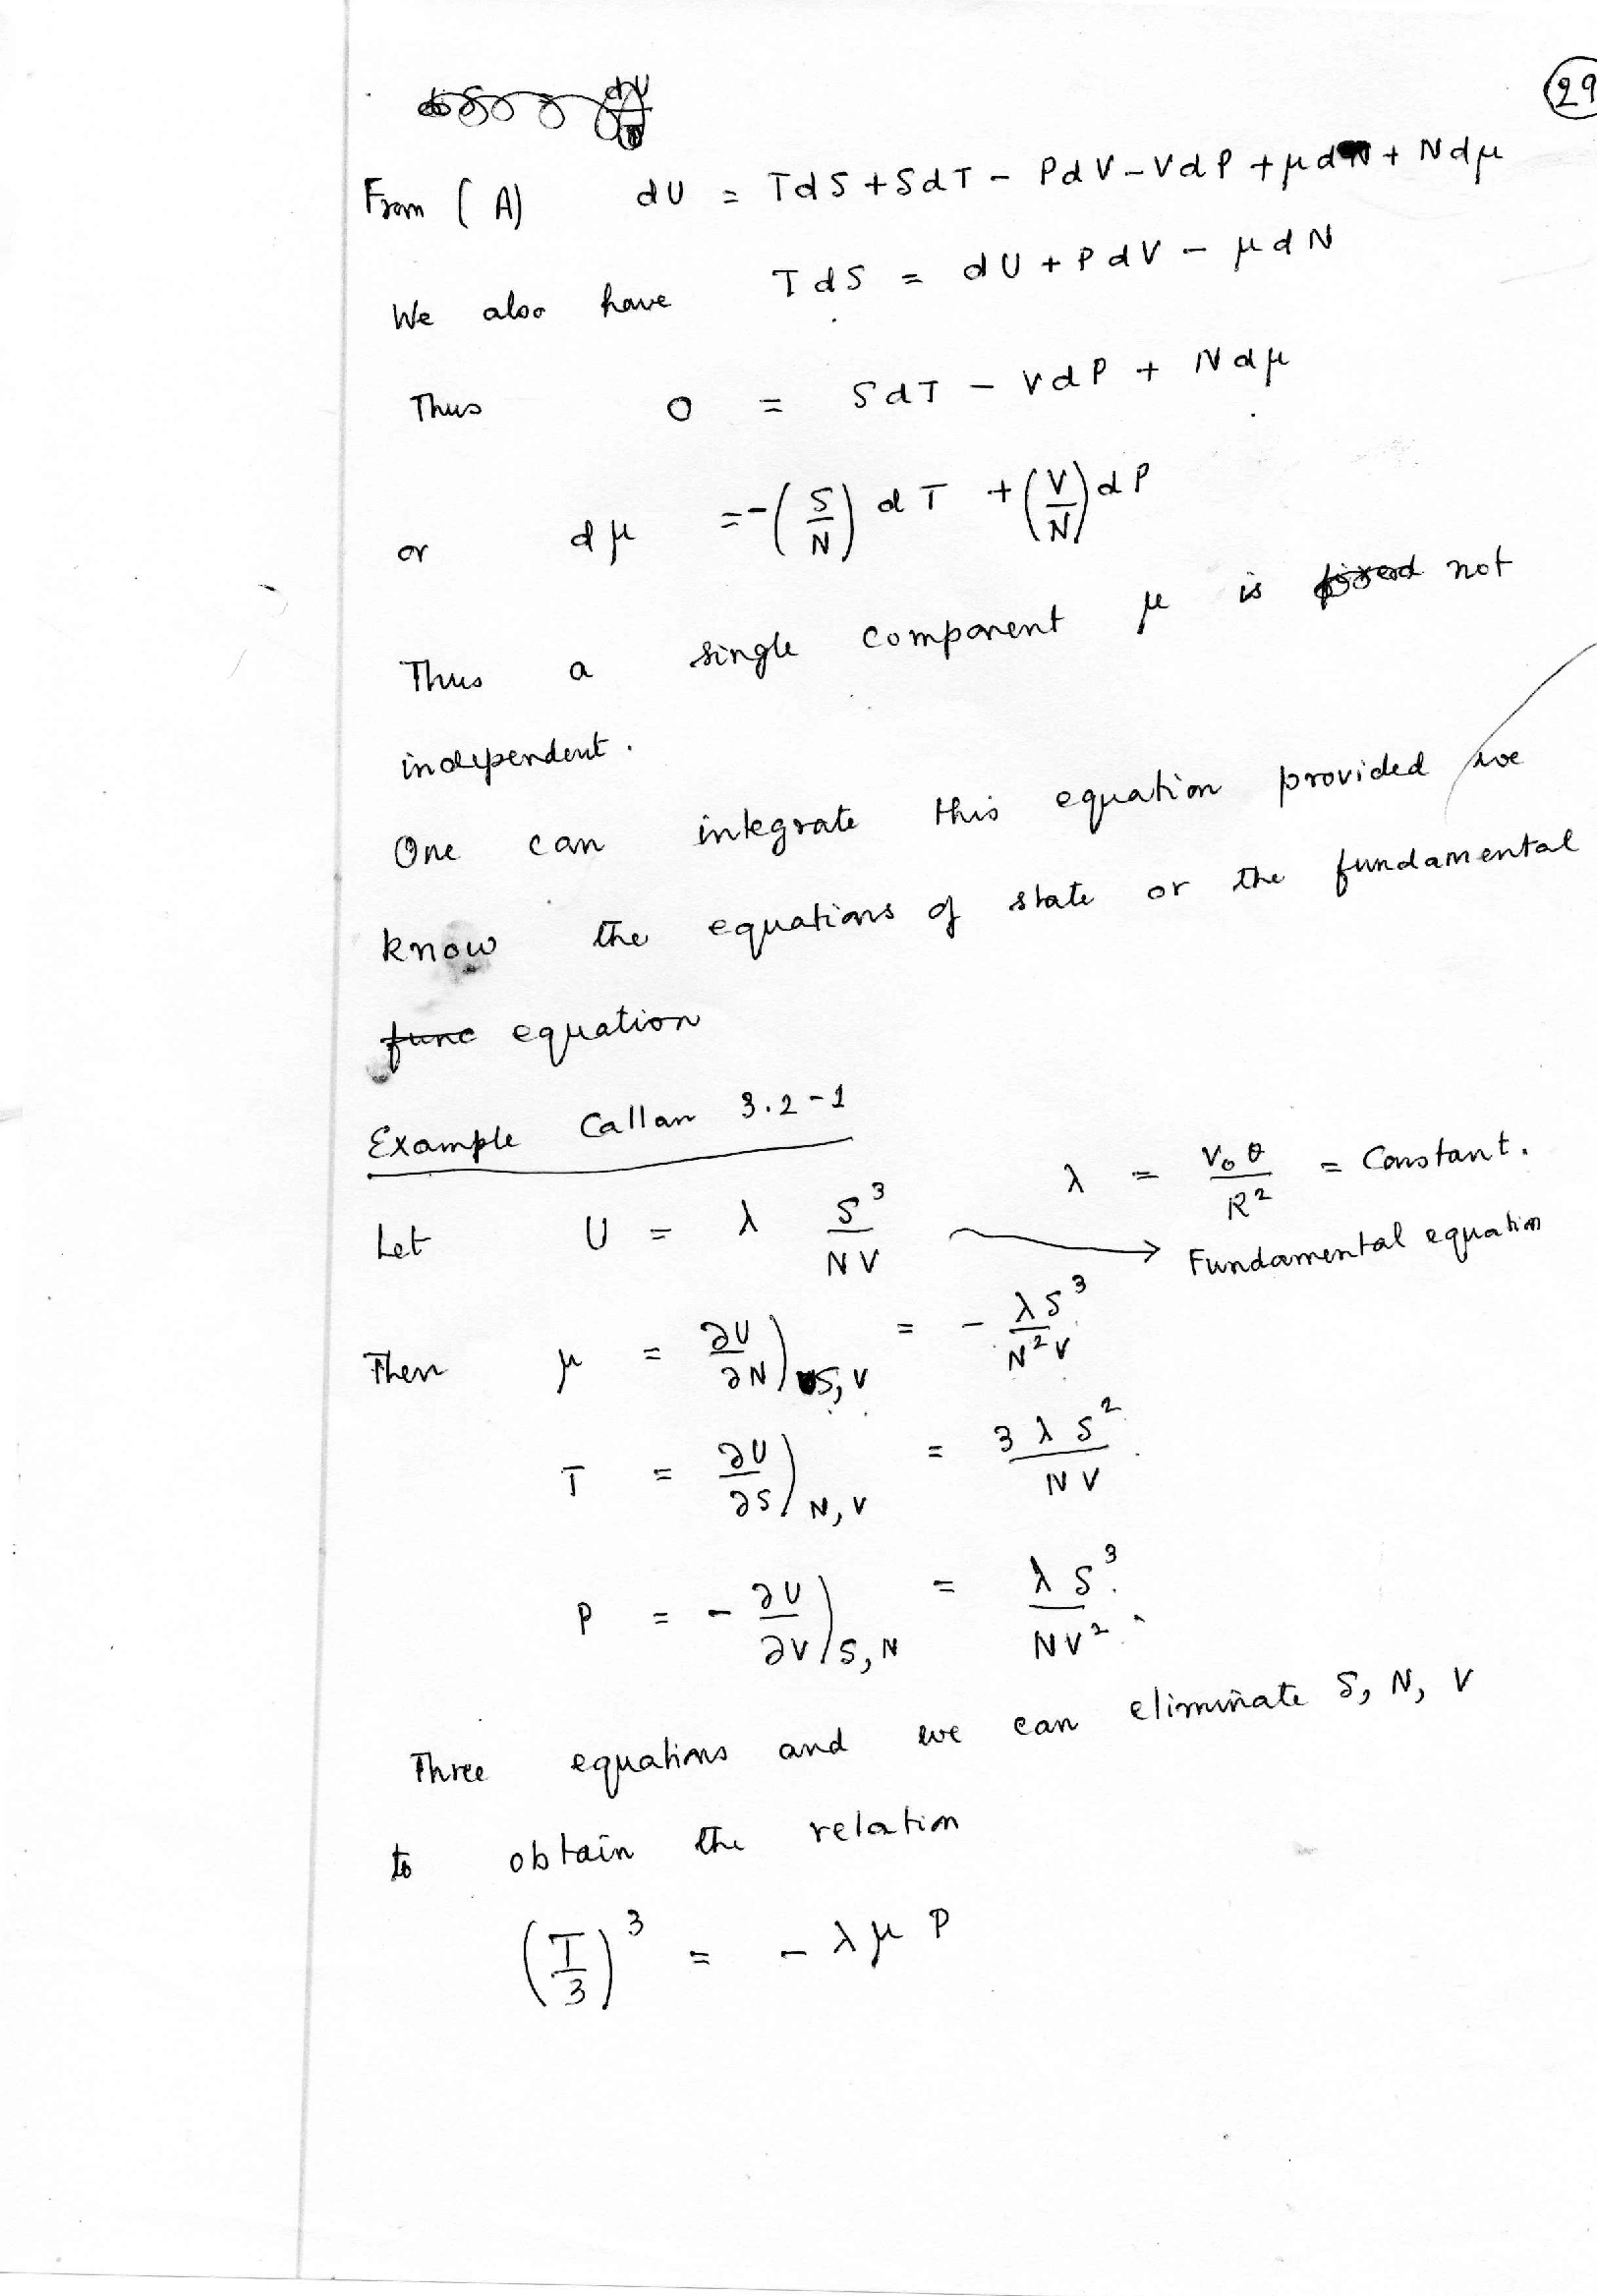 29
From (A) dU = TdS + SdT - PdV - VdP + μdN + Ndμ
We also have TdS = dU + PdV - μdN
Thus 0 = SdT - VdP + Ndμ
or dμ = -(S/N) dT + (V/N) dP
Thus a single component μ is not
independent.
One can integrate this equation provided we
know the equations of state or the fundamental
equation
Example Callan 3.2-1
Let U = λ S³/NV λ = V₀θ/R² = Constant.
→ Fundamental equation
Then μ = ∂U/∂N)S,V = - λS³/N²V
T = ∂U/∂S)N,V = 3λS²/NV
P = - ∂U/∂V)S,N = λS³/NV²
Three equations and we can eliminate S, N, V
to obtain the relation
(T/3)³ = - λμP